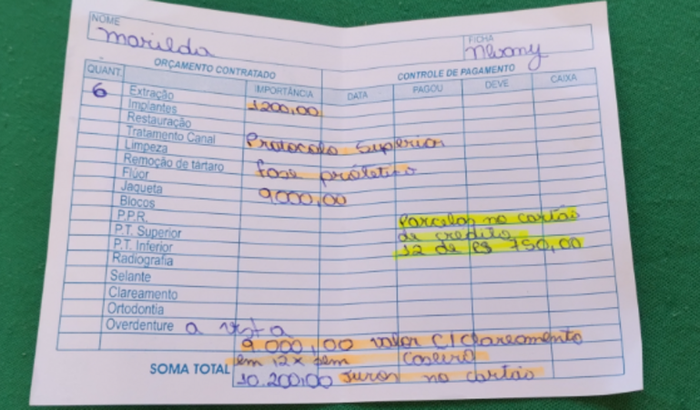 NOME
Marilda
FICHA
Nvany
ORÇAMENTO CONTRATADO
CONTROLE DE PAGAMENTO
QUANT.
IMPORTÂNCIA
DATA
PAGOU
DEVE
CAIXA
6 Extração
Implantes 1200,00
Restauração
Tratamento Canal Protocolo Superior
Limpeza
Remoção de tártaro fase protetico
Flúor
Jaqueta 9000,00
Blocos
P.P.R. Parcelas no cartão
P.T. Superior de credito
P.T. Inferior 12 de R$ 750,00
Radiografia
Selante
Clareamento
Ortodontia
Overdenture a vista
9.000,00 valor C/ clareamento
em 12x sem caseiro
SOMA TOTAL 10.200,00 juros no cartão